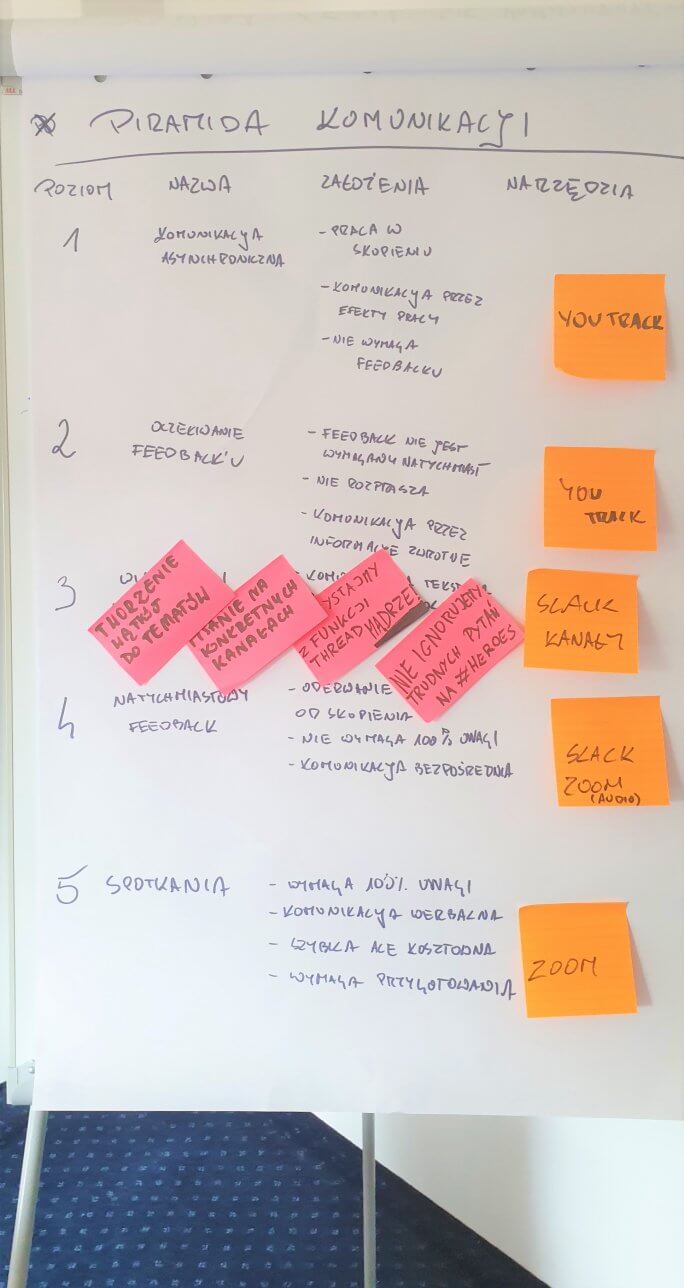 PIRAMIDA KOMUNIKACJI
POZIOM NAZWA ZAŁOŻENIA NARZĘDZIA
1 KOMUNIKACJA
ASYNCHRONICZNA
- PRACA W
SKUPIENIU
- KOMUNIKACJA PRZEZ
EFEKTY PRACY
- NIE WYMAGA
FEEDBACKU
YOUTRACK
2 OCZEKIWANIE
FEEDBACK'U
- FEEDBACK NIE JEST
WYMAGANY NATYCHMIAST
- NIE ROZPRASZA
- KOMUNIKACJA PRZEZ
INFORMACJE ZWROTNE
YOU
TRACK
3
TWORZENIE
WĄTKÓW
DO TEMATÓW
PYTANIE NA
KONKRETNYCH
KANAŁACH
Z FUNKCJI
THREAD MĄDRZE!
NIE IGNORUJEMY
TRUDNYCH PYTAŃ
NA #HEROES
SLACK
KANAŁY
4 NATYCHMIASTOWY
FEEDBACK
- ODERWANIE
OD SKUPIENIA
- NIE WYMAGA 100% UWAGI
- KOMUNIKACJA BEZPOŚREDNIA
SLACK
ZOOM
(AUDIO)
5 SPOTKANIA
- WYMAGA 100% UWAGI
- KOMUNIKACJA WERBALNA
- SZYBKA ALE KOSZTOWNA
- WYMAGA PRZYGOTOWANIA
ZOOM